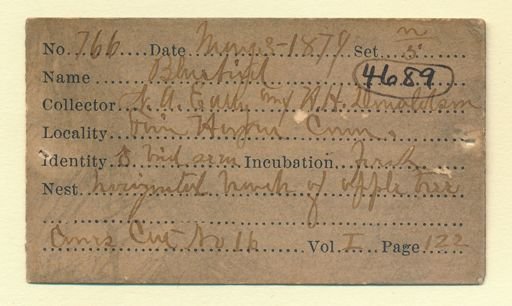 No. 766 Date May 3-1879 Set n/5
Name Bluebird 4689
Collector J. A. and W. H. Donaldson
Locality Conn.
Identity bird seen Incubation Fresh
Nest. horizontal of apple tree
No. 16 Vol. I Page 122